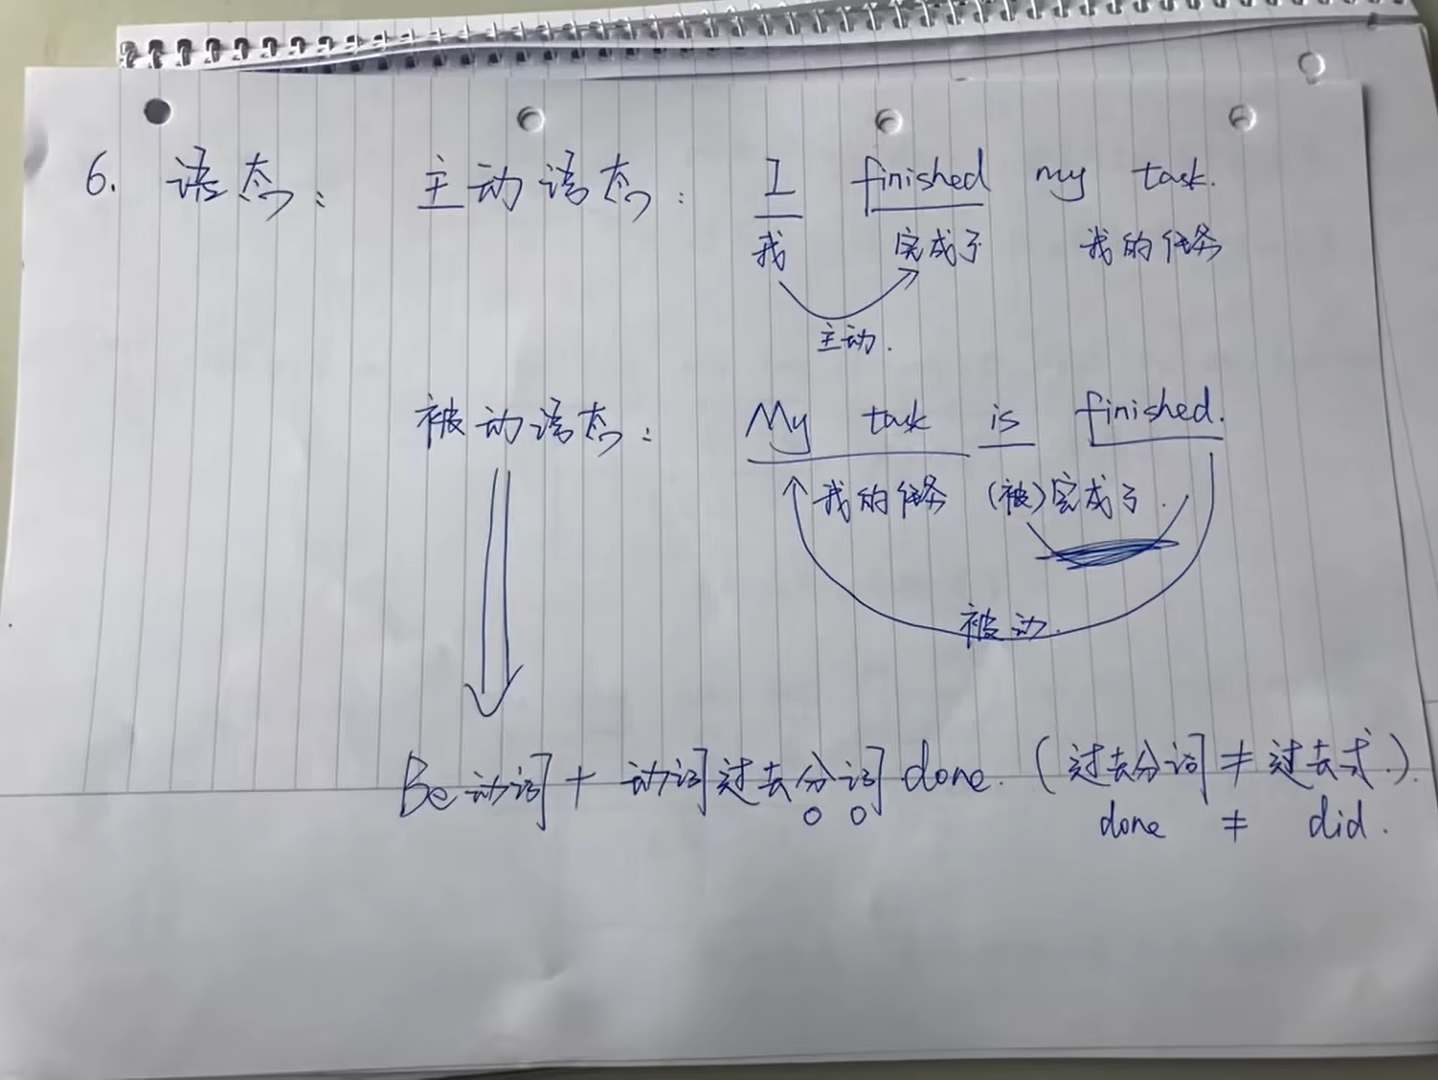 6. 语态： 主动语态： I finished my task.
我 完成了 我的任务
主动.
被动语态： My task is finished.
我的任务 (被)完成了.
被动.
Be动词 + 动词过去分词 done. (过去分词 ≠ 过去式.).
done ≠ did.